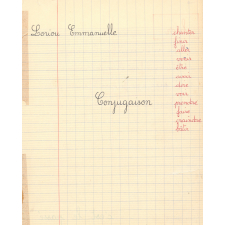 Loriou Emmanuelle
Conjugaison
chanter
finir
aller
venir
être
avoir
dire
voir
prendre
faire
craindre